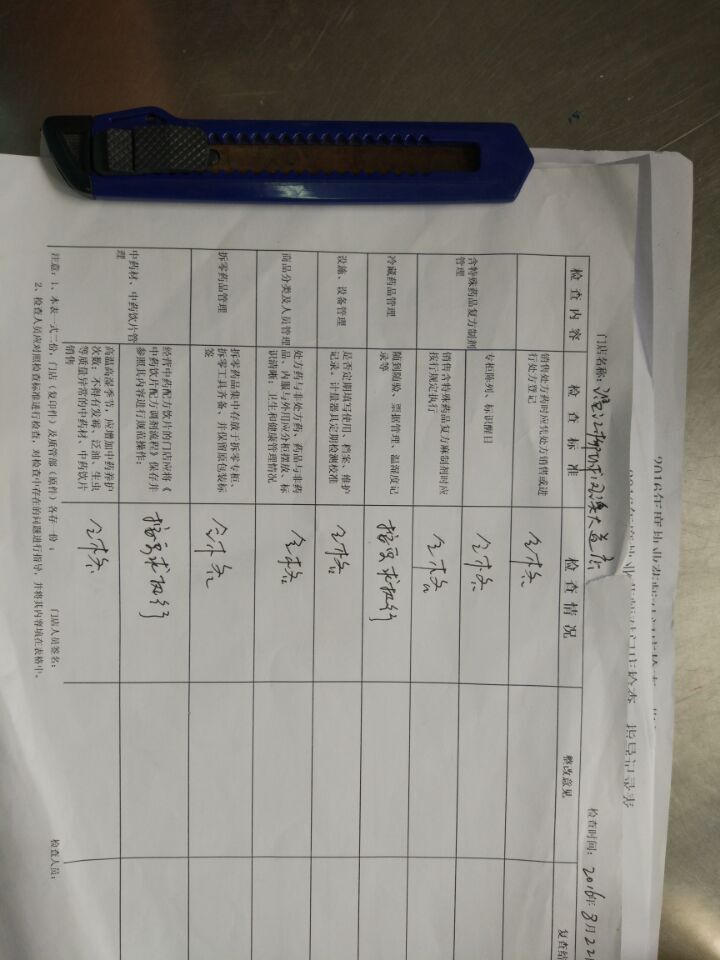 门店名称:
检查时间: 2016年8月22
检查内容 检查标准 检查情况 整改意见 复查结
销售处方药时应凭处方销售或进
行处方登记
合格
含特殊药品复方制剂
管理
专柜陈列、标识醒目
合格
销售含特殊药品复方麻制剂时应
按行规定执行
合格
冷藏药品管理
随到随验、票据管理、温湿度记
录等
按要求执行
设施、设备管理
是否定期填写使用、档案、维护
记录;计量器具定期检测校准
合格
商品分类及人员管理
处方药与非处方药、药品与非药
品、内服与外用应分柜摆放、标
识清晰;卫生和健康管理情况
合格
拆零药品管理
拆零药品集中存放于拆零专柜、
拆零工具齐备、并保留原包装标
签
合格
中药材、中药饮片管
理
经营中药配方饮片的门店应将《
中药饮片配方调剂流程》保存并
参照其内容进行规范操作;
按要求执行
高温高湿季节,应增加中药养护
次数;不得有发霉、泛油、生虫
等质量异常的中药材、中药饮片
销售
合格
注意:1、本表一式二份,门店(复印件)及质管部(原件)各存一份;
2、检查人员应对照检查标准进行检查,对检查中存在的问题进行指导,并将其内容填在表格中。
门店人员签名:
检查人员: